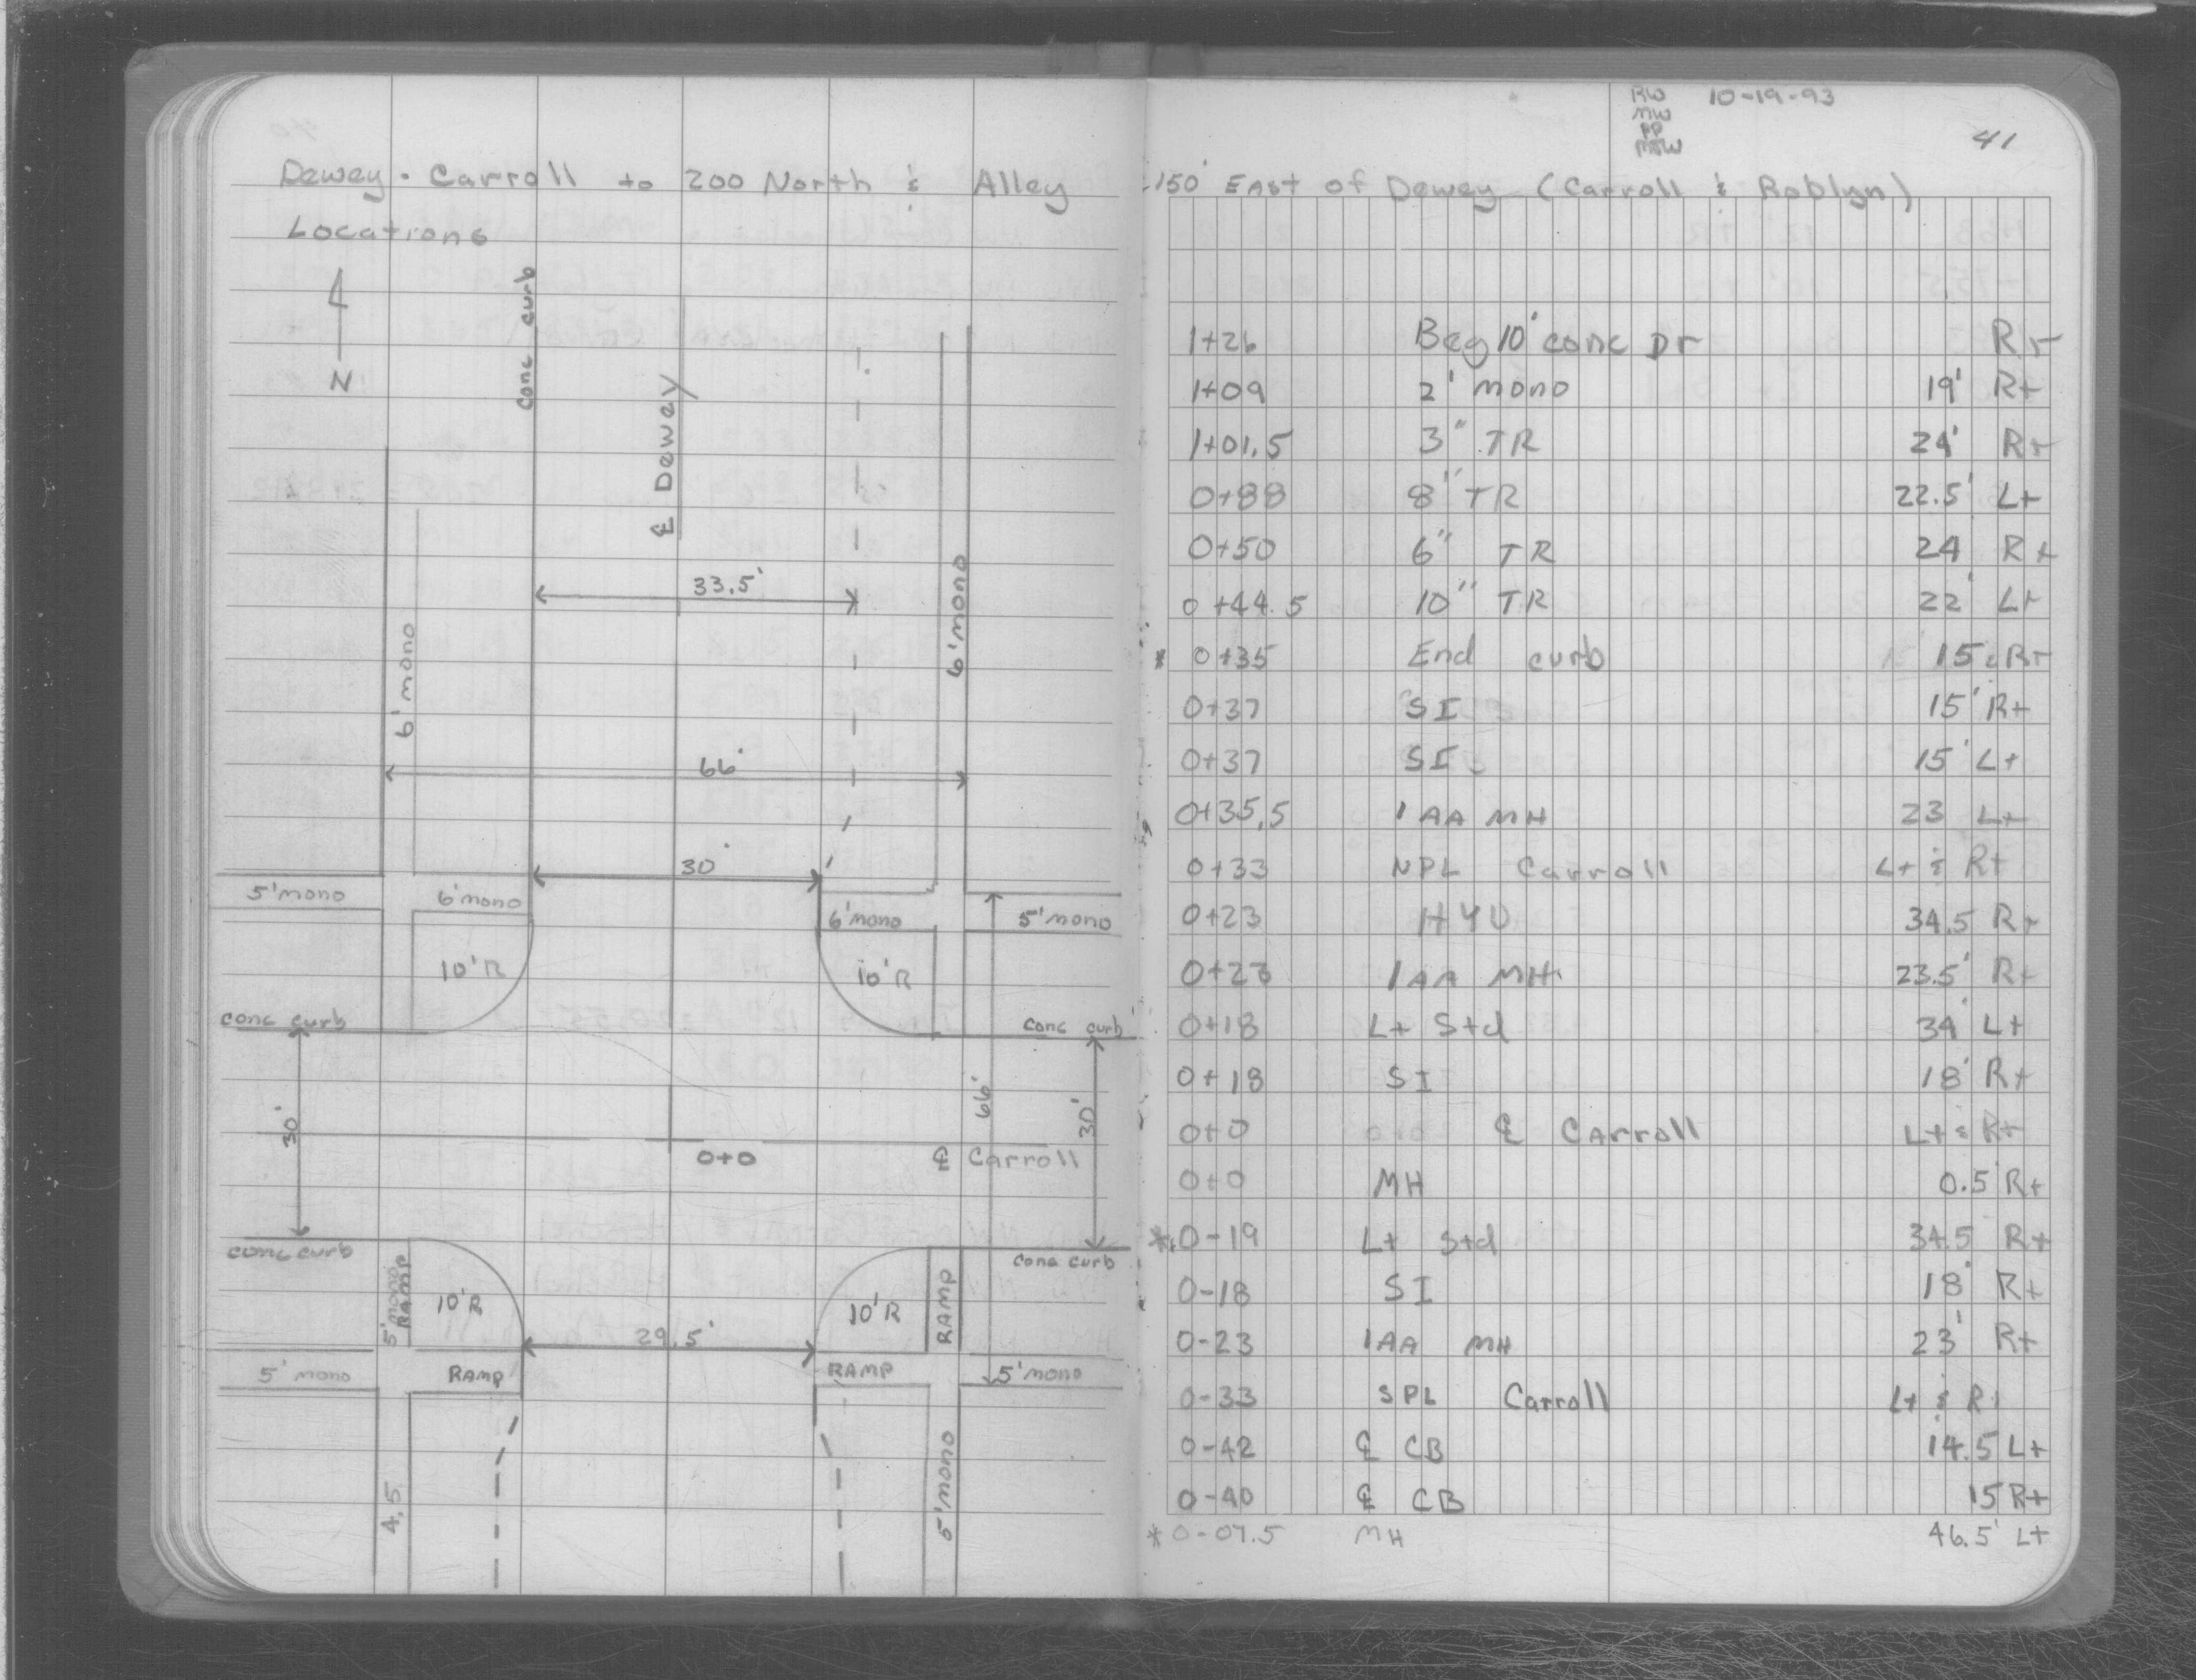 RW 10-19-93
MW
PP
41
Dewey - Carroll to 200 North & Alley 150' East of Dewey (Carroll & Roblyn)
Locations
N
conc curb
℄ Dewey
33.5'
6' mono
6' mono
66'
30'
5' mono
6' mono
6' mono
5' mono
10' R
10' R
conc curb
conc curb
30'
66'
30'
0+0
℄ Carroll
conc curb
conc curb
5' mono
RAMP
10' R
10' R
RAMP
29.5'
5' mono
RAMP
RAMP
5' mono
4.5
5' mono
1+26 Beg 10' conc Dr Rt
1+09 2' mono 19' Rt
1+01.5 3" TR 24' Rt
0+88 8" TR 22.5' Lt
0+50 6" TR 24 Rt
0+44.5 10" TR 22' Lt
* 0+35 End curb 15' Rt
0+37 SI 15' Rt
0+37 SI 15' Lt
0+35.5 1AA MH 23 Lt
0+33 NPL Carroll Lt & Rt
0+23 HYD 34.5 Rt
0+23 1AA MH 23.5' Rt
0+18 Lt Std 34' Lt
0+18 SI 18' Rt
0+0 ℄ Carroll Lt & Rt
0+0 MH 0.5 Rt
* 0-19 Lt Std 34.5 Rt
0-18 SI 18' Rt
0-23 1AA MH 23' Rt
0-33 SPL Carroll Lt & Rt
0-42 ℄ CB 14.5 Lt
0-40 ℄ CB 15 Rt
* 0-07.5 MH 46.5' Lt